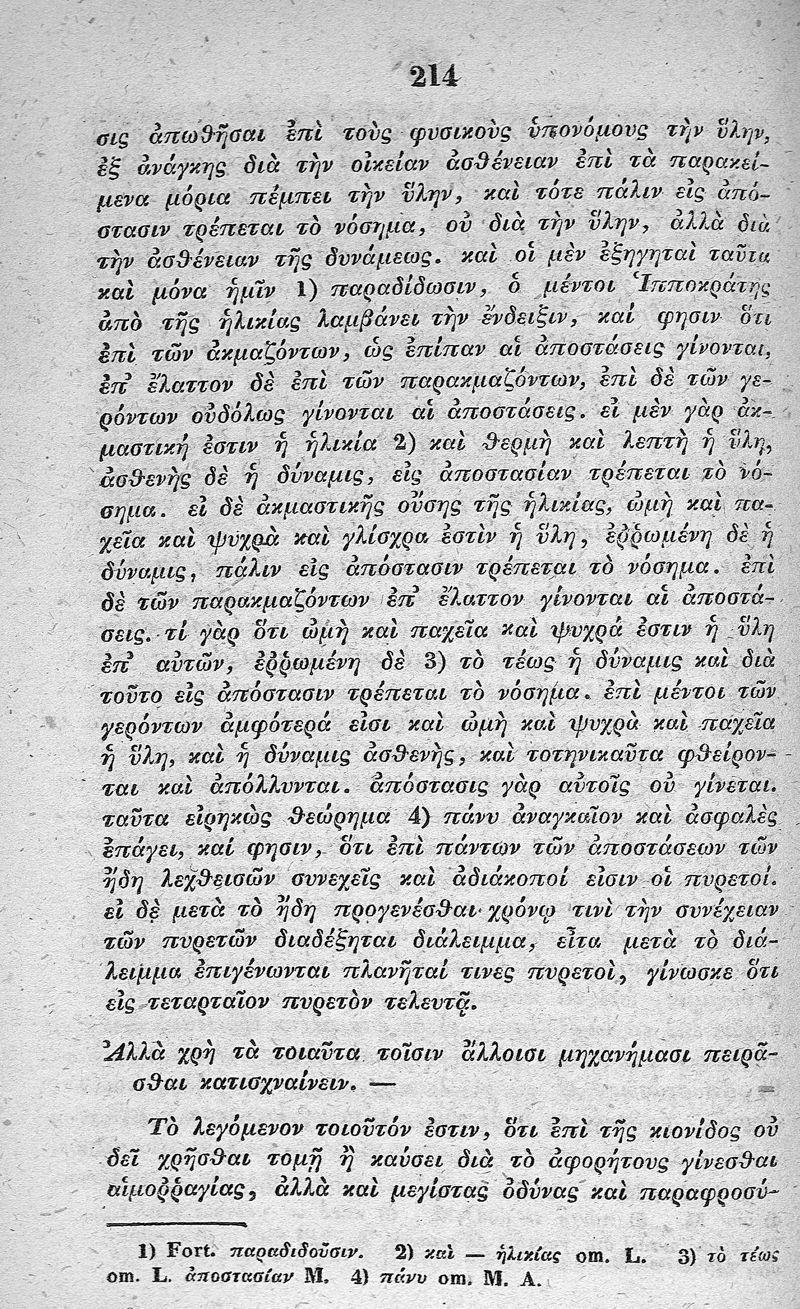 214
σις ἀπωθῆσαι ἐπὶ τοὺς φυσικοὺς ὑπονόμους τὴν ὕλην,
ἐξ ἀνάγκης διὰ τὴν οἰκείαν ἀσθένειαν ἐπὶ τὰ παρακεί-
μενα μόρια πέμπει τὴν ὕλην, καὶ τότε πάλιν εἰς ἀπό-
στασιν τρέπεται τὸ νόσημα, οὐ διὰ τὴν ὕλην, ἀλλὰ διὰ
τὴν ἀσθένειαν τῆς δυνάμεως. καὶ οἱ μὲν ἐξηγηταὶ ταῦτα
καὶ μόνα ἡμῖν 1) παραδίδωσιν, ὁ μέντοι Ἱπποκράτης
ἀπὸ τῆς ἡλικίας λαμβάνει τὴν ἔνδειξιν, καί φησιν ὅτι
ἐπὶ τῶν ἀκμαζόντων, ὡς ἐπίπαν αἱ ἀποστάσεις γίνονται,
ἐπ᾽ ἔλαττον δὲ ἐπὶ τῶν παρακμαζόντων, ἐπὶ δὲ τῶν γε-
ρόντων οὐδόλως γίνονται αἱ ἀποστάσεις. εἰ μὲν γὰρ ἀκ-
μαστική ἐστιν ἡ ἡλικία 2) καὶ θερμὴ καὶ λεπτὴ ἡ ὕλη,
ἀσθενὴς δὲ ἡ δύναμις, εἰς ἀποστασίαν τρέπεται τὸ νό-
σημα. εἰ δὲ ἀκμαστικῆς οὔσης τῆς ἡλικίας, ὠμὴ καὶ πα-
χεῖα καὶ ψυχρὰ καὶ γλίσχρα ἐστὶν ἡ ὕλη, ἐῤῥωμένη δὲ ἡ
δύναμις, πάλιν εἰς ἀπόστασιν τρέπεται τὸ νόσημα. ἐπὶ
δὲ τῶν παρακμαζόντων ἐπ᾽ ἔλαττον γίνονται αἱ ἀποστά-
σεις. τί γὰρ ὅτι ὠμὴ καὶ παχεῖα καὶ ψυχρά ἐστιν ἡ ὕλη
ἐπ᾽ αὐτῶν, ἐῤῥωμένη δὲ 3) τὸ τέως ἡ δύναμις καὶ διὰ
τοῦτο εἰς ἀπόστασιν τρέπεται τὸ νόσημα. ἐπὶ μέντοι τῶν
γερόντων ἀμφότερά εἰσι καὶ ὠμὴ καὶ ψυχρὰ καὶ παχεῖα
ἡ ὕλη, καὶ ἡ δύναμις ἀσθενὴς, καὶ τοτηνικαῦτα φθείρον-
ται καὶ ἀπόλλυνται. ἀπόστασις γὰρ αὐτοῖς οὐ γίνεται.
ταῦτα εἰρηκὼς θεώρημα 4) πάνυ ἀναγκαῖον καὶ ἀσφαλὲς
ἐπάγει, καί φησιν, ὅτι ἐπὶ πάντων τῶν ἀποστάσεων τῶν
ἤδη λεχθεισῶν συνεχεῖς καὶ ἀδιάκοποί εἰσιν οἱ πυρετοί.
εἰ δὲ μετὰ τὸ ἤδη προγενέσθαι χρόνῳ τινὶ τὴν συνέχειαν
τῶν πυρετῶν διαδέξηται διάλειμμα, εἶτα μετὰ τὸ διά-
λειμμα ἐπιγένωνται πλανῆταί τινες πυρετοὶ, γίνωσκε ὅτι
εἰς τεταρταῖον πυρετὸν τελευτᾷ.
Ἀλλὰ χρὴ τὰ τοιαῦτα τοῖσιν ἄλλοισι μηχανήμασι πειρᾶ-
σθαι κατισχναίνειν. —
Τὸ λεγόμενον τοιοῦτόν ἐστιν, ὅτι ἐπὶ τῆς κιονίδος οὐ
δεῖ χρῆσθαι τομῇ ἢ καύσει διὰ τὸ ἀφορήτους γίνεσθαι
αἱμοῤῥαγίας, ἀλλὰ καὶ μεγίστας ὀδύνας καὶ παραφροσύ-
1) Fort. παραδιδοῦσιν. 2) καὶ — ἡλικίας om. L. 3) τὸ τέως
om. L. ἀποστασίαν M. 4) πάνυ om. M. A.